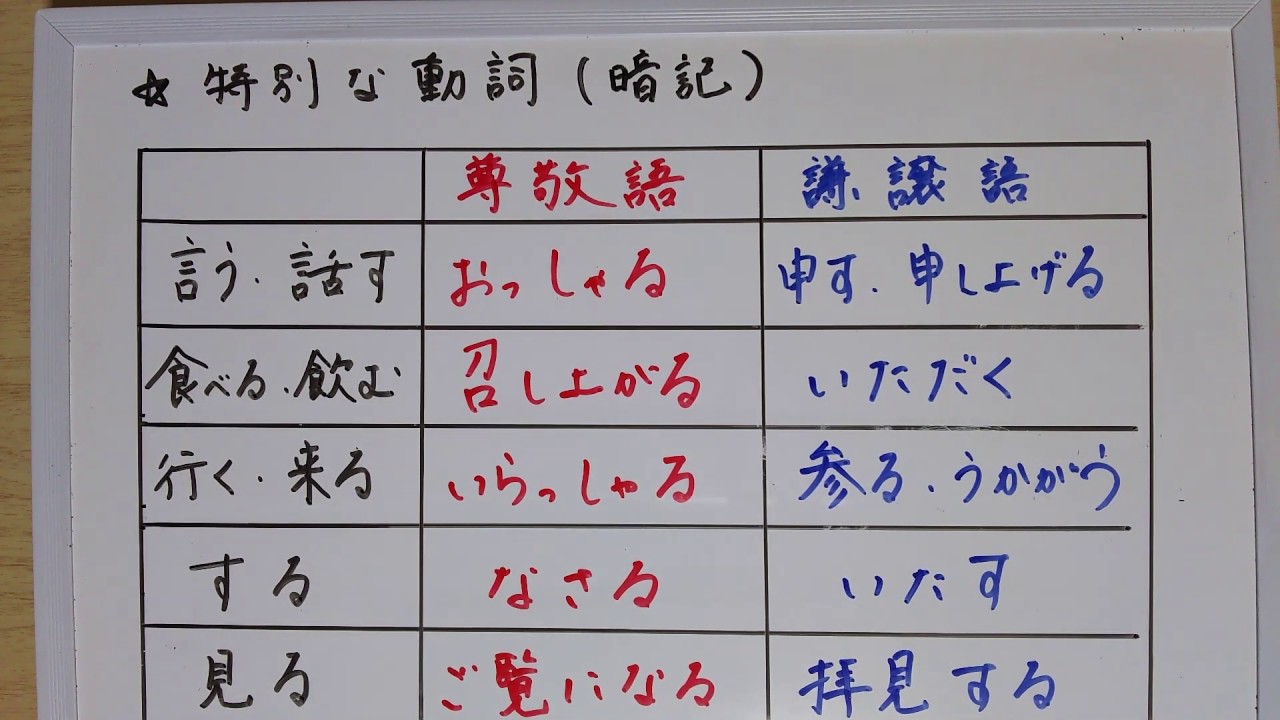 ☆ 特別な動詞(暗記)
尊敬語 謙譲語
言う・話す おっしゃる 申す、申し上げる
食べる、飲む 召し上がる いただく
行く・来る いらっしゃる 参る、うかがう
する なさる いたす
見る ご覧になる 拝見する